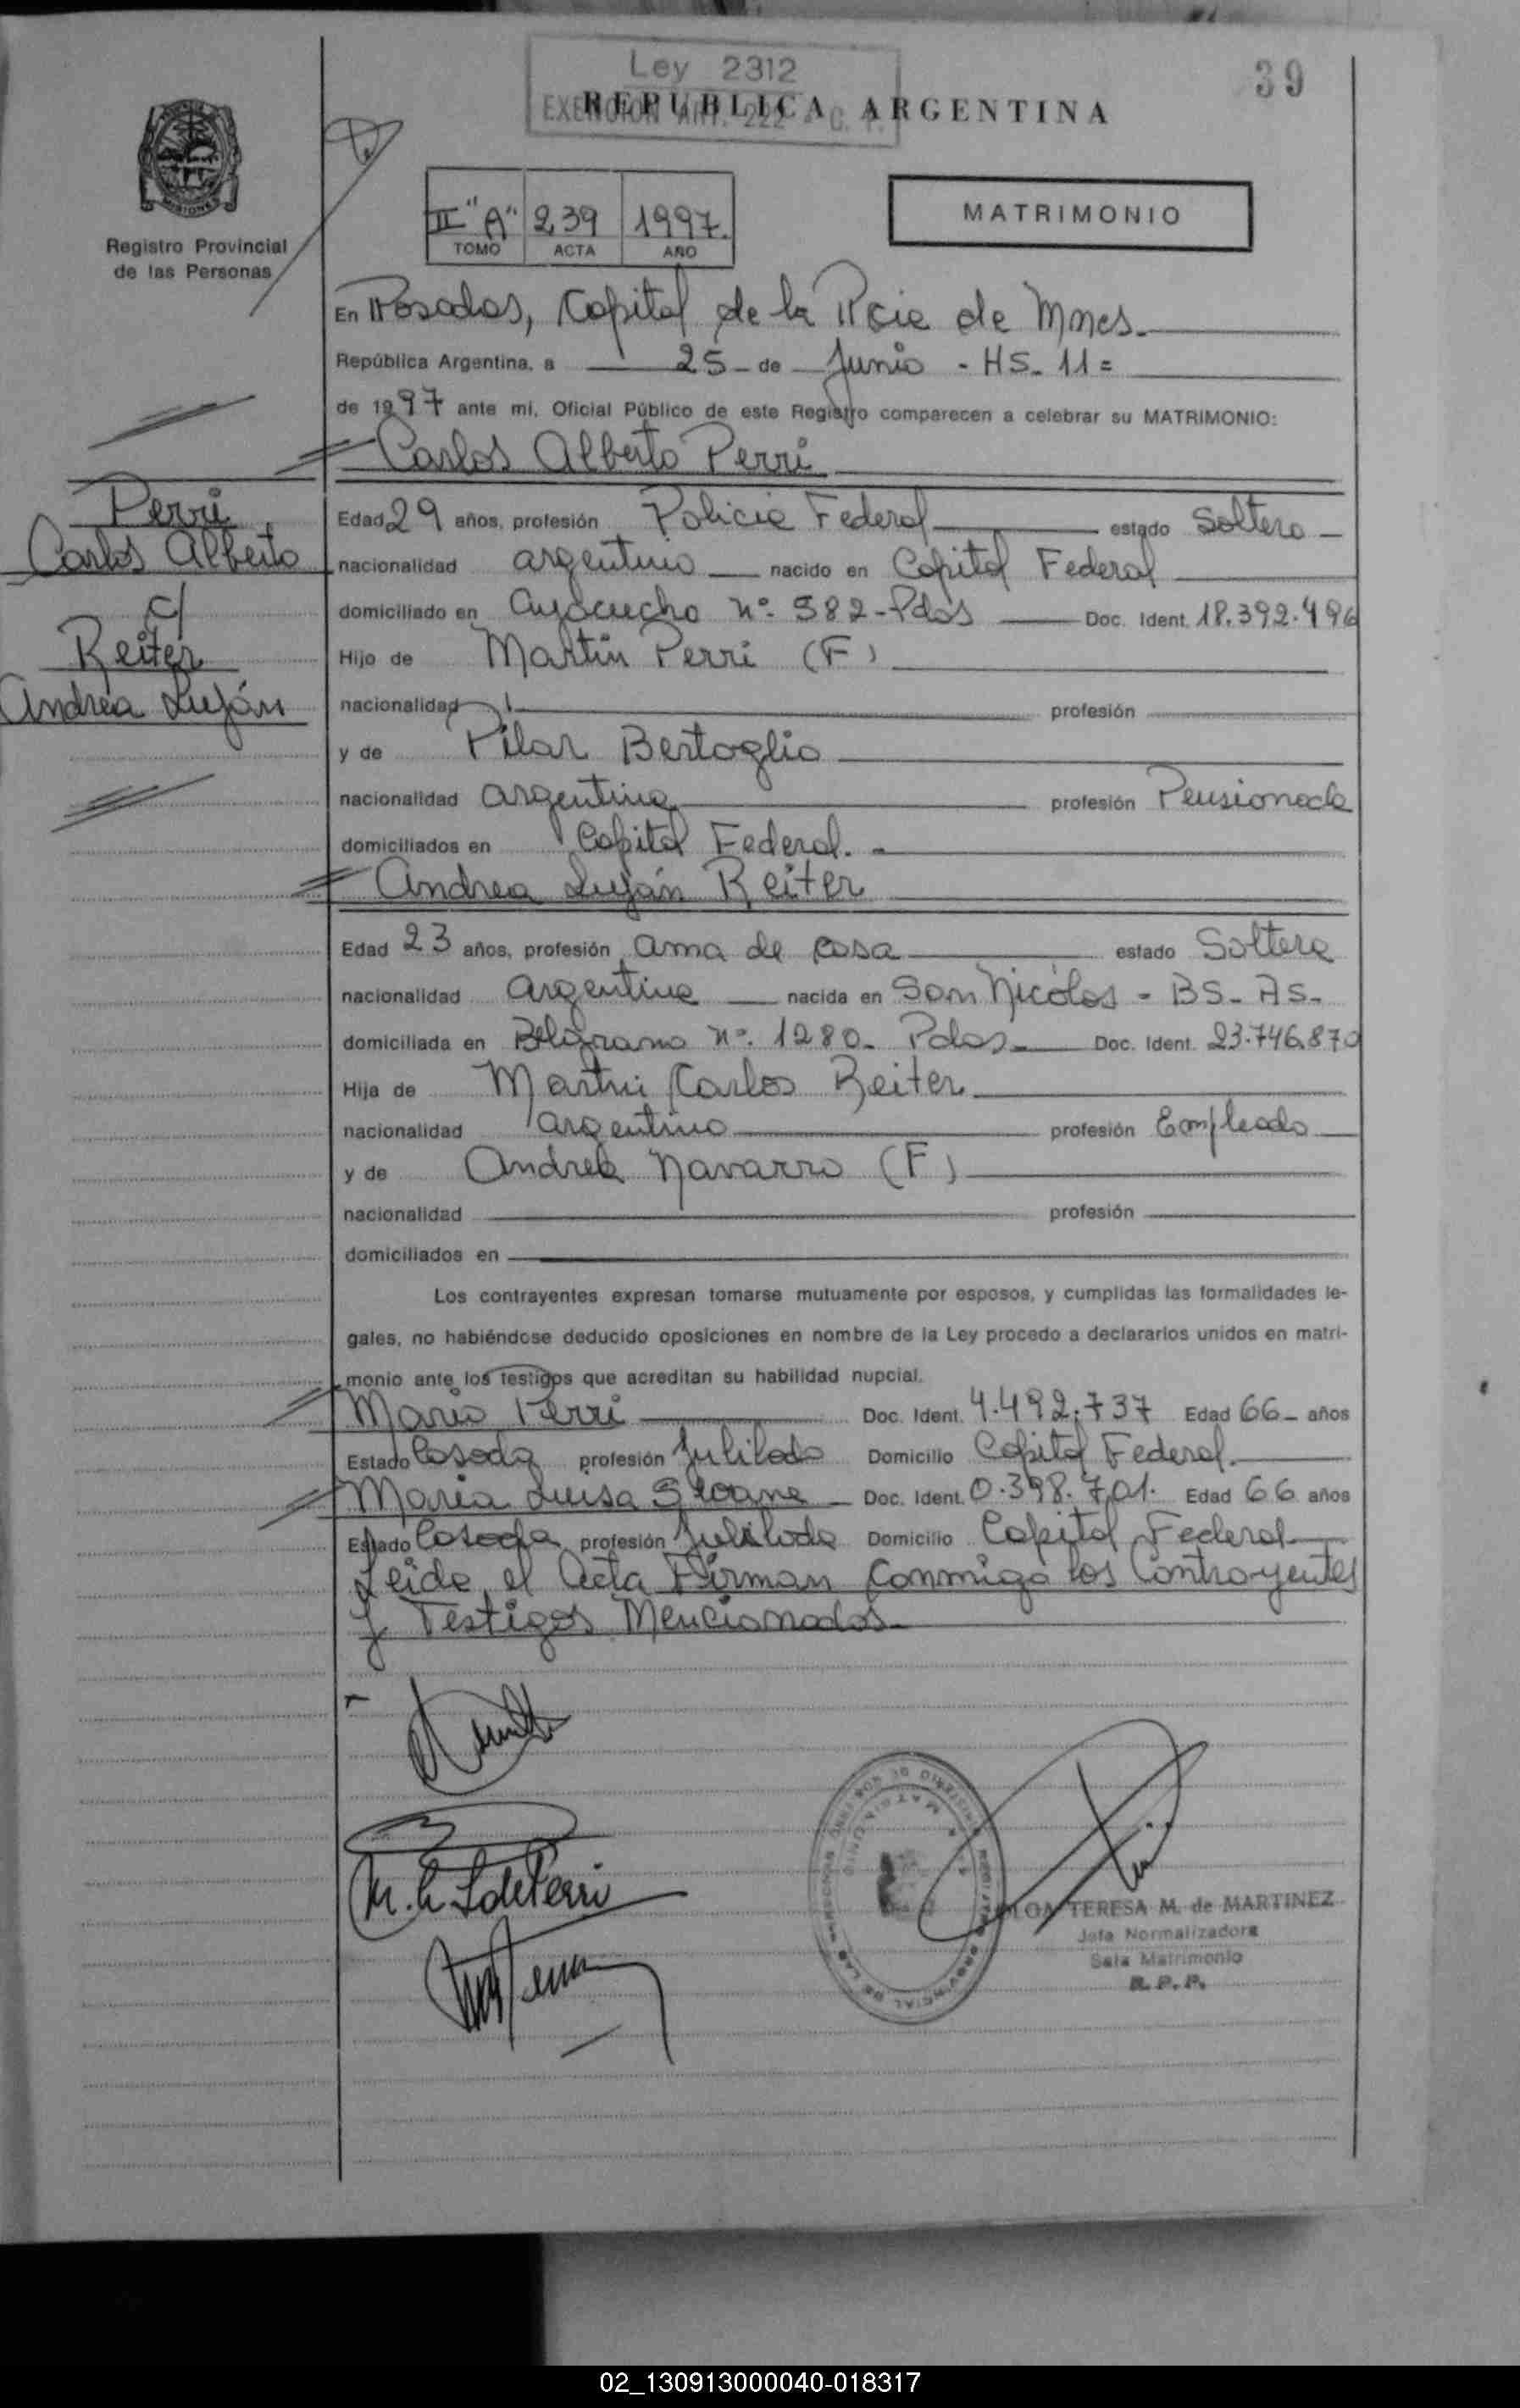 39
Ley 2312
EXENCION ART. 222 C. F.
REPUBLICA ARGENTINA
MISIONES
Registro Provincial
de las Personas
II "A" 239 1997.
TOMO ACTA AÑO
MATRIMONIO
En Posadas, Capital de la Pcia de Mnes.
República Argentina, a 25 - de Junio - HS. 11=
de 1997 ante mí, Oficial Público de este Registro comparecen a celebrar su MATRIMONIO:
Carlos Alberto Perri
Perri
Carlos Alberto
c/
Reiter
Andrea Luján
Edad 29 años, profesión Policia Federal estado Soltero
nacionalidad argentino nacido en Capital Federal
domiciliado en Ayacucho nº 582 - Pdas Doc. Ident. 18.392.496
Hijo de Martin Perri (F)
nacionalidad profesión
y de Pilar Bertoglio
nacionalidad argentina profesión Pensionada
domiciliados en Capital Federal. -
Andrea Luján Reiter
Edad 23 años, profesión ama de casa estado Soltera
nacionalidad argentina nacida en San Nicolas - BS - AS -
domiciliada en Belgrano nº. 1280 - Pdas - Doc. Ident. 23.746.870
Hija de Martin Carlos Reiter
nacionalidad argentino profesión Empleado
y de Andrea Navarro (F)
nacionalidad profesión
domiciliados en
Los contrayentes expresan tomarse mutuamente por esposos, y cumplidas las formalidades le-
gales, no habiéndose deducido oposiciones en nombre de la Ley procedo a declararlos unidos en matri-
monio ante los testigos que acreditan su habilidad nupcial.
Mario Perri Doc. Ident. 4.492.737 Edad 66 - años
Estado Casado profesión Jubilado Domicilio Capital Federal.
Maria Luisa Doc. Ident. 0.398.701. Edad 66 años
Estado Casada profesión Jubilada Domicilio Capital Federal
Leida el Acta Firman conmigo los Contrayentes
y Testigos Mencionados
TERESA M. de MARTINEZ
Jefa Normalizadora
Sala Matrimonio
R. P. P.
02_130913000040-018317